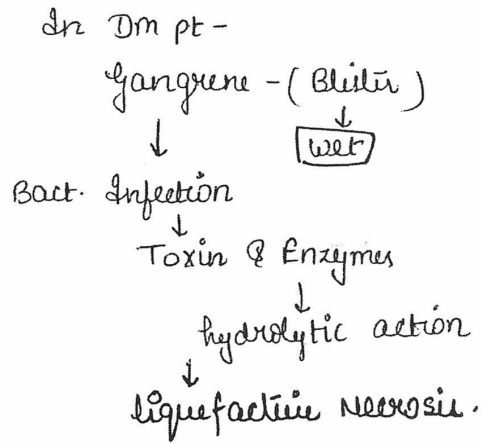 In Dm pt -
Gangrene - ( Blister )
↓ ↓
Wet
Bact. Infection
↓
Toxin & Enzymes
↓
hydrolytic action
↓
liquefactive Necrosis.